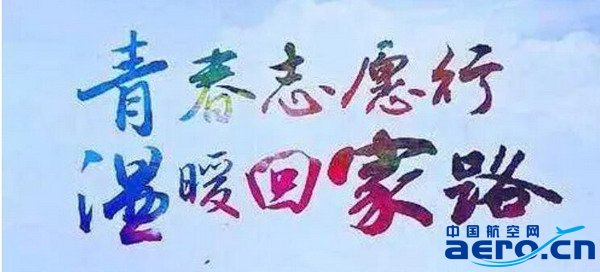 青春志愿行
温暖回家路
中国航空网
aero.cn